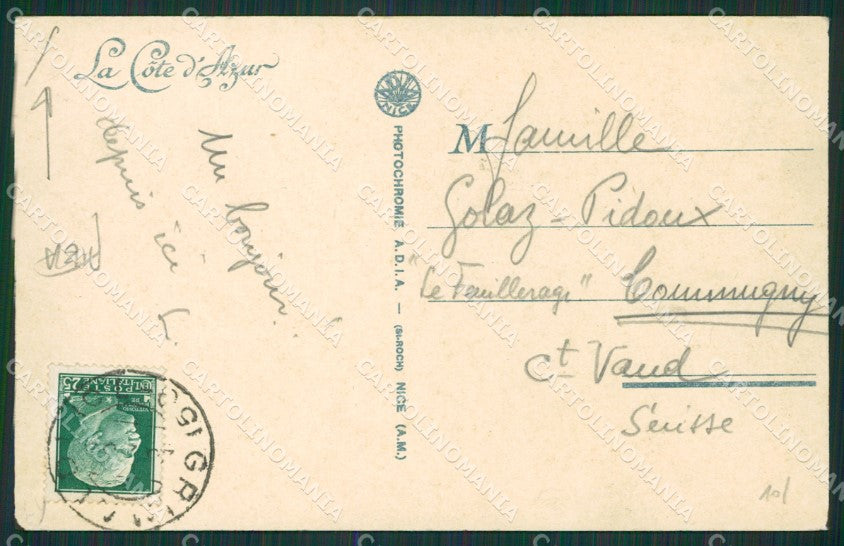 La Côte d'Azur
Un bonjour
depuis ici
NICE
PHOTOCHROMIE A.D.I.A. — (St-ROCH) NICE (A.M.)
M Famille
Golaz-Pidoux
"Le Feuillerage" Commugny
Ct Vaud
Suisse
10/
POSTE ITALIANE
CENT 25
CARTOLINOMANIA